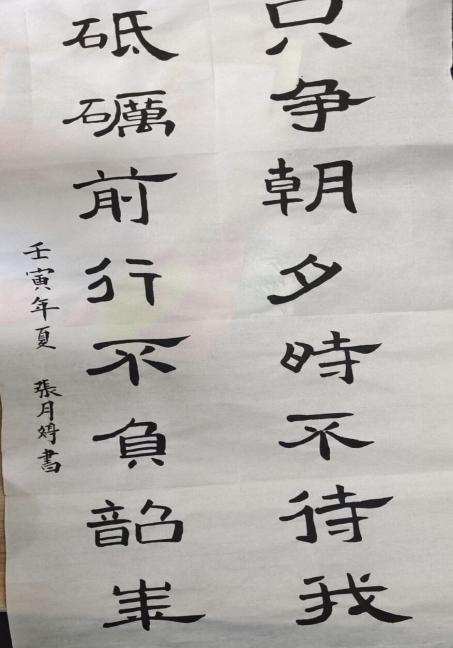 只争朝夕時不待我
砥礪前行不負韶華
壬寅年夏 張月婷書